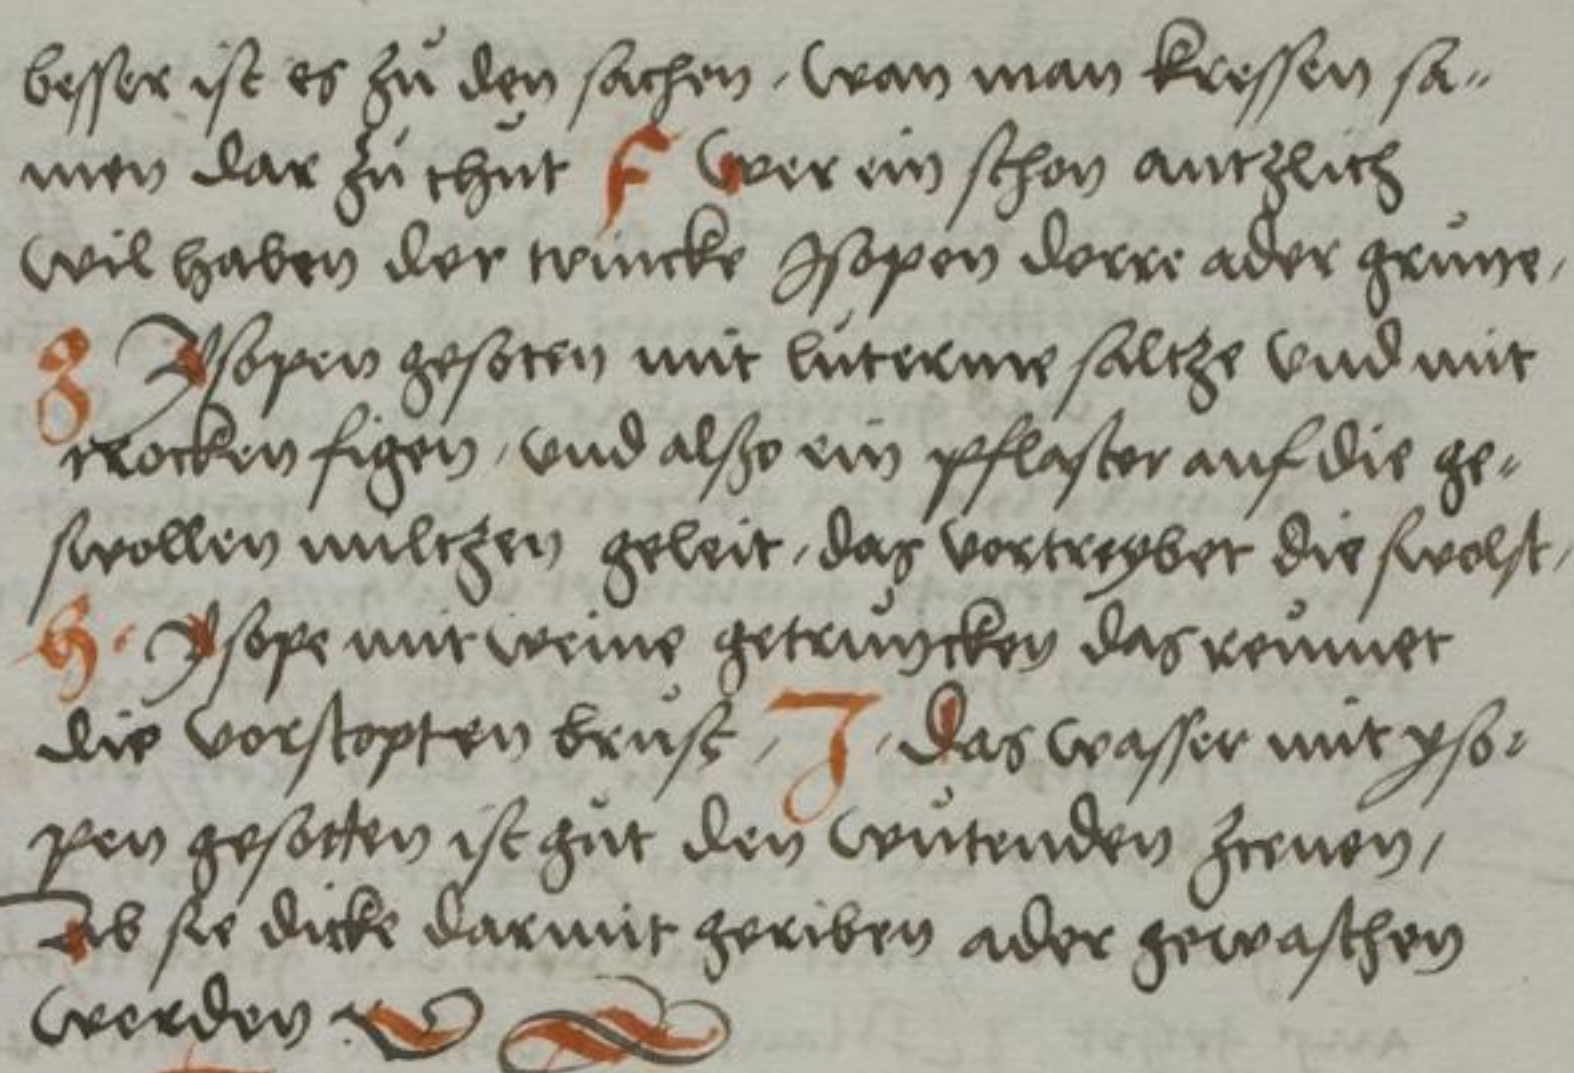 besser ist es zů den sachen / wan man kressen sa=
men dar zů thůt F Wer ein schon antzlich
wil haben der trincke Jsopen dorre ader grůne /
g Jsopen gesoten mit luterme saltze vnd mit
trocken figen / vnd alßo ein pflaster auf die ge=
swollen miltzen geleit / das vortreybet die swolst /
h · Jsope mit weine getruncken das reumet
die vorstopten brust / J · Das wasser mit yso=
pen gesotten ist gůt den wůtenden zcenen /
Ab sie dicke darmit geriben ader gewaschen
werden